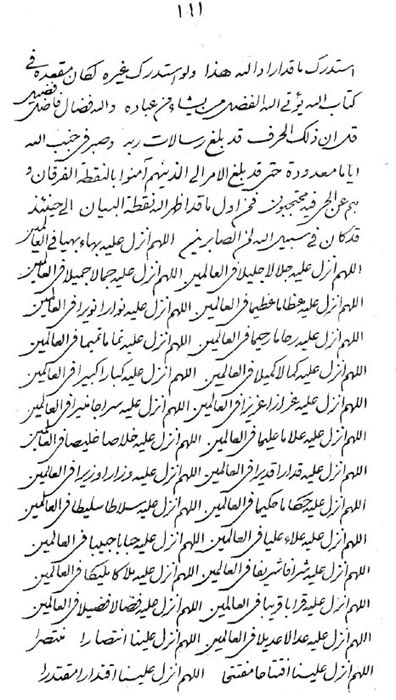 ١٦١
استدرك ما قد اراد الله هذا ولو استدرك غيره لكان مقعده في
كتاب الله يؤتي الله الفضل من يشاء من عباده والله فضال فاضل فضيل
قل ان ذلك الحرف قد بلغ رسالات ربه وصبر في جنب الله
اياما معدودة حتى قد بلغ الامر الى الذينهم آمنوا بالنقطة الفرقان و
هم عن الحي فيه محتجبون فمن اول ما قد اظهر الله نقطة البيان الى حينئذ
قد كان في سبيل الله لمن الصابرين اللهم انزل عليه بهاء بهيا في العالمين
اللهم انزل عليه جلالا جليلا في العالمين اللهم انزل عليه جمالا جميلا في العالمين
اللهم انزل عليه عظاما عظيما في العالمين اللهم انزل عليه نوارا نويرا في العالمين
اللهم انزل عليه رحاما رحيما في العالمين اللهم انزل عليه تماما تميما في العالمين
اللهم انزل عليه كمالا كميلا في العالمين اللهم انزل عليه كبارا كبيرا في العالمين
اللهم انزل عليه عزازا عزيزا في العالمين اللهم انزل عليه سراجا منيرا في العالمين
اللهم انزل عليه علاما عليما في العالمين اللهم انزل عليه خلاصا خليصا في العالمين
اللهم انزل عليه قدارا قديرا في العالمين اللهم انزل عليه وزارا وزيرا في العالمين
اللهم انزل عليه حكاما حكيما في العالمين اللهم انزل عليه سلاطا سليطا في العالمين
اللهم انزل عليه علاء عليا في العالمين اللهم انزل عليه حبابا حبيبا في العالمين
اللهم انزل عليه شرافا شريفا في العالمين اللهم انزل عليه ملاكا مليكا في العالمين
اللهم انزل عليه قرابا قريبا في العالمين اللهم انزل عليه فضالا فضيلا في العالمين
اللهم انزل عليه عدالا عديلا في العالمين اللهم انزل علينا انتصارا منتصرا
اللهم انزل علينا افتتاحا مفتتحا اللهم انزل علينا اقتدارا مقتدرا